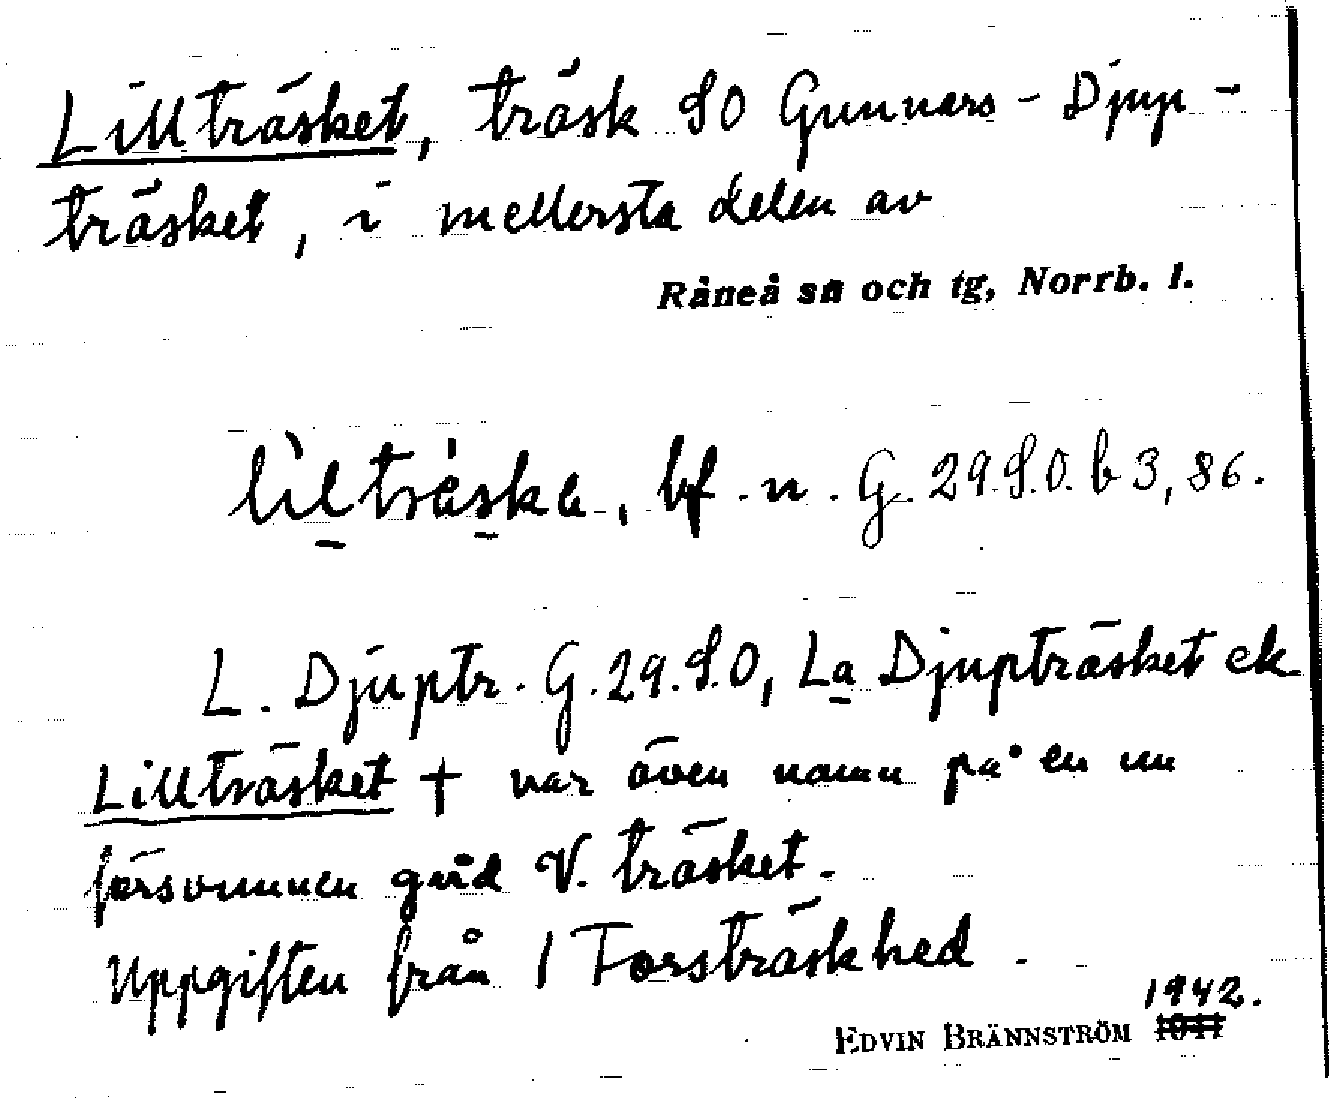 Lillträsket, träsk SO Gunnars-Djup-
träsket, i mellersta delen av
Råneå sn och tg, Norrb. l.
bf. n. G. 29.S.O. b 3, 86.
L. Djuptr. G. 29.S.O, La Djupträsket ek
Lillträsket † var även namn på en nu
försvunnen gård V. träsket.
Uppgiften från 1 Forsträskhed.
1942.
EDVIN BRÄNNSTRÖM 1941